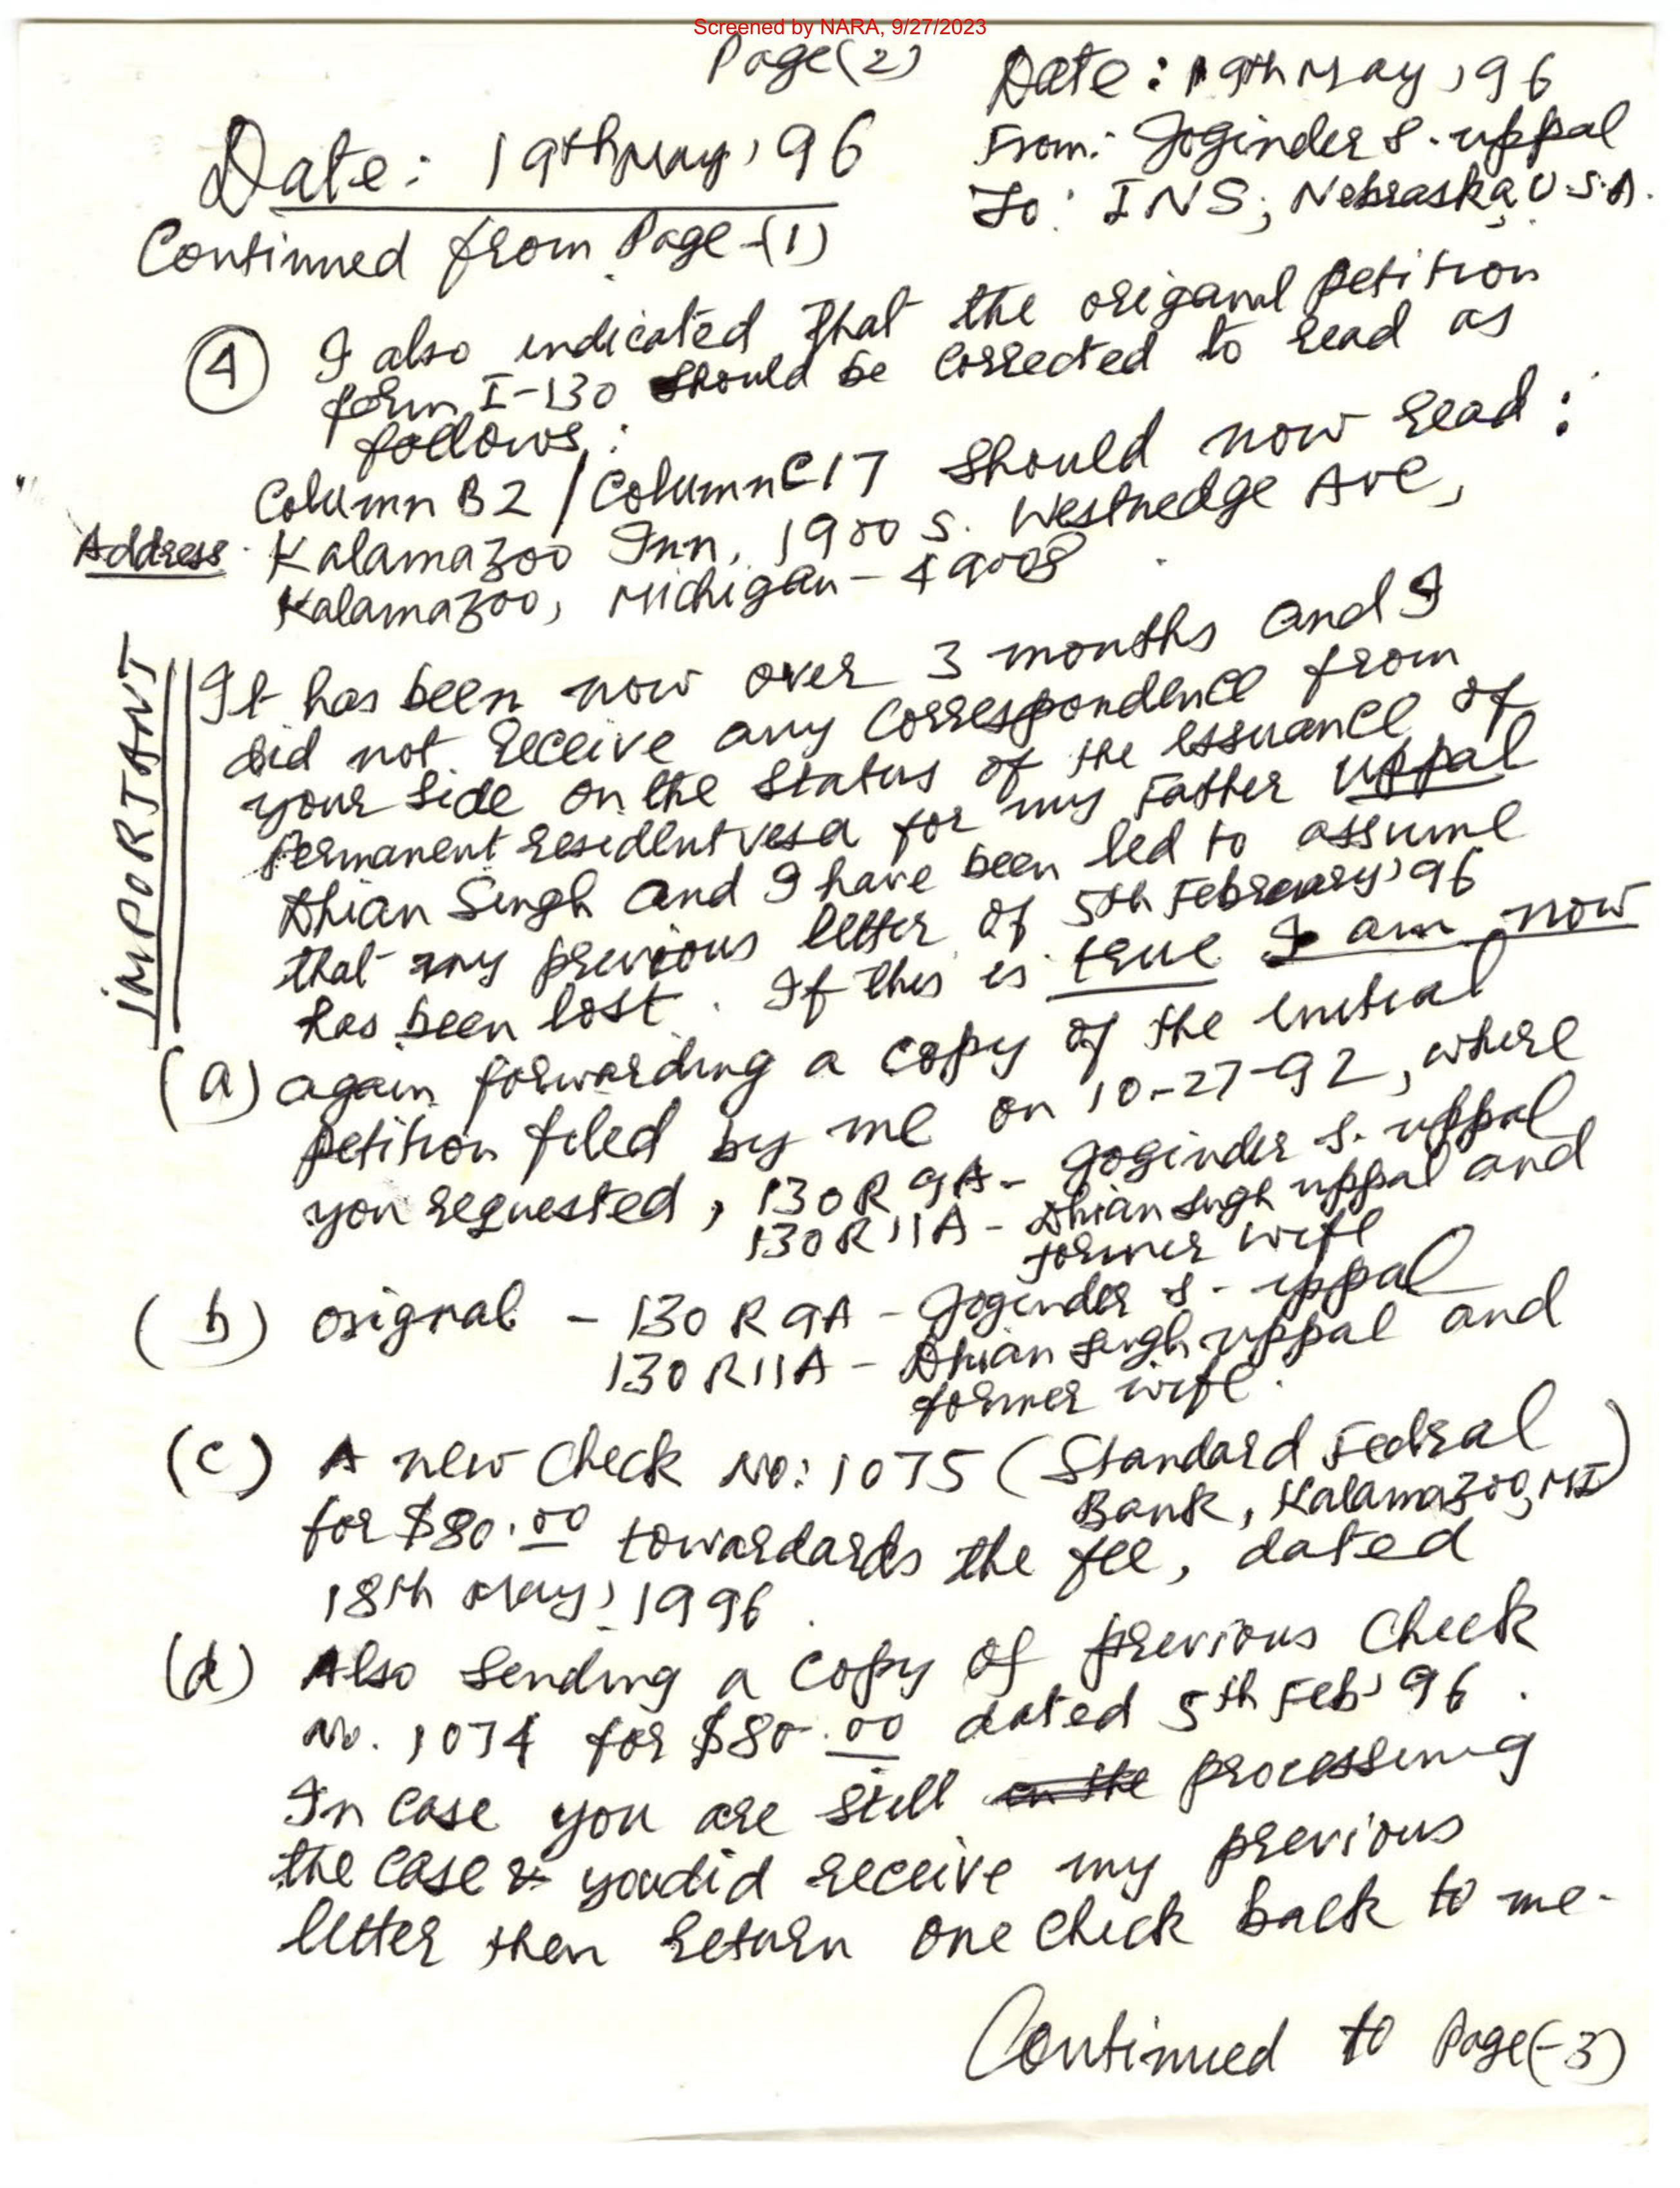 Screened by NARA, 9/27/2023
Page(2)
Date: 19th May, 96
From: Joginder S. Uppal
To: INS, Nebraska, U.S.A.
Date: 19th May, 96
Continued from Page-(1)
(4) I also indicated that the origanal petition
form I-130 should be corrected to read as
follows:
Column B2 / Column C17 should now read:
Address. Kalamazoo Inn, 1900 S. Westnedge Ave,
Kalamazoo, Michigan - 49008
IMPORTANT
It has been now over 3 months and I
did not receive any correspondence from
your side on the status of the issuance of
Permanent resident visa for my Father Uppal
Dhian Singh and I have been led to assume
that my previous letter of 5th February, 96
has been lost. If this is true I am now
(a) again forwarding a copy of the initial
petition filed by me on 10-27-92, where
you requested, 130R 9A - Joginder S. Uppal
130R 11A - Dhian Singh Uppal and
former wife
(b) original - 130 R 9A - Joginder S. Uppal
130 R11A - Dhian Singh Uppal and
former wife.
(c) A new Check No: 1075 (Standard Fedral
Bank, Kalamazoo, MI)
for $80.00 towardards the fee, dated
18th May, 1996.
(d) Also sending a copy of previous Check
No. 1074 for $80.00 dated 5th Feb, 96.
In case you are still in the processing
the case & you did receive my previous
letter then return one check back to me.
Continued to Page(-3)